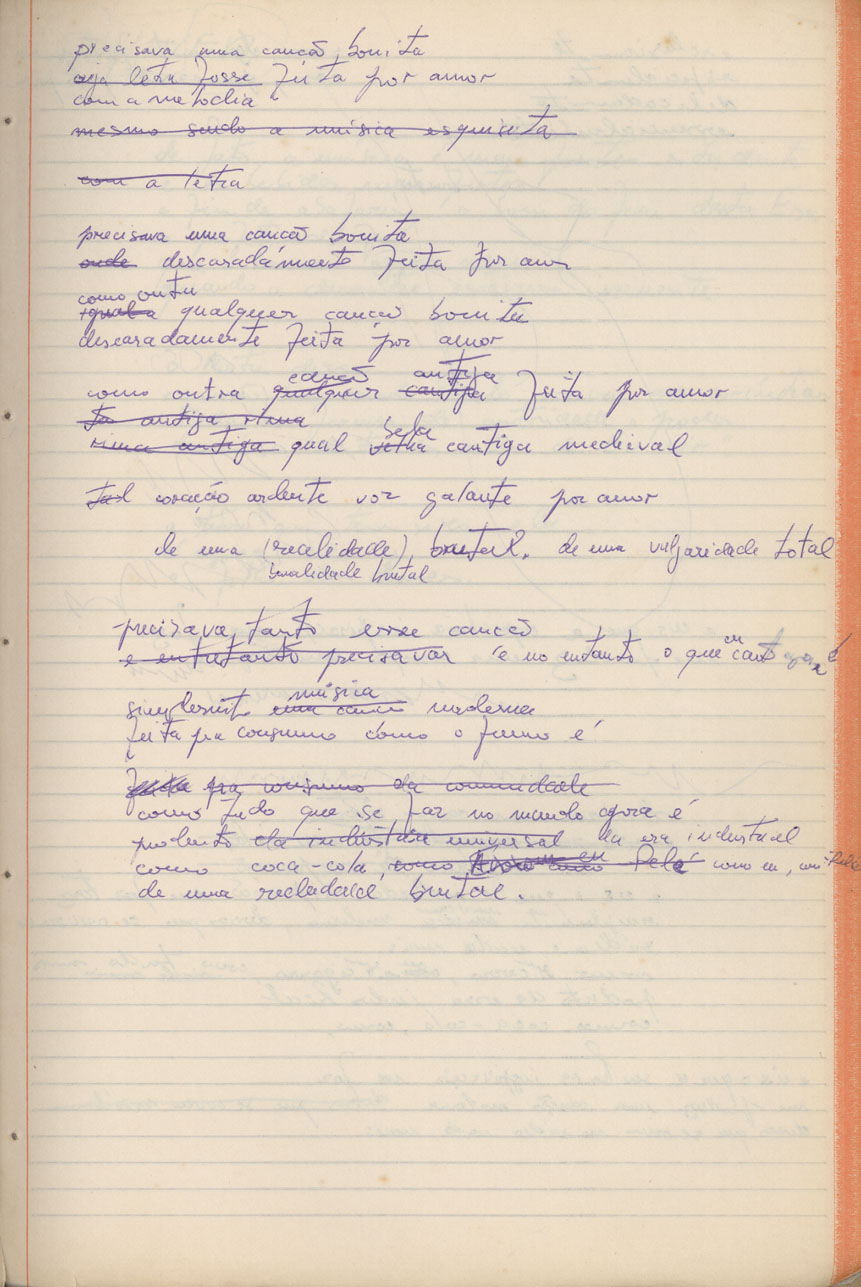 precisava uma canção bonita
cuja letra fosse feita por amor
com a melodia
mesmo sendo a música esquisita
com a letra
precisava uma canção bonita
onde descaradamente feita por amor
como outra
igual a qualquer canção bonita
descaradamente feita por amor
canção antiga
como outra qualquer cantiga feita por amor
antiga rima
bela
rima antiga qual cantiga medieval
tal coração ardente voz galante por amor
de uma (realidade) brutal. de uma vulgaridade total
banalidade brutal
precisava tanto esse canção
e entretanto precisava e no entanto o que eu canto agora é
música
simplesmente uma moderna
feita pra consumo como o fumo é
feita pra consumo da comunidade
como tudo que se faz no mundo agora é
produto da indústria universal da era industrial
como coca-cola, como Pelé como eu, como Pelé
de uma realidade brutal.